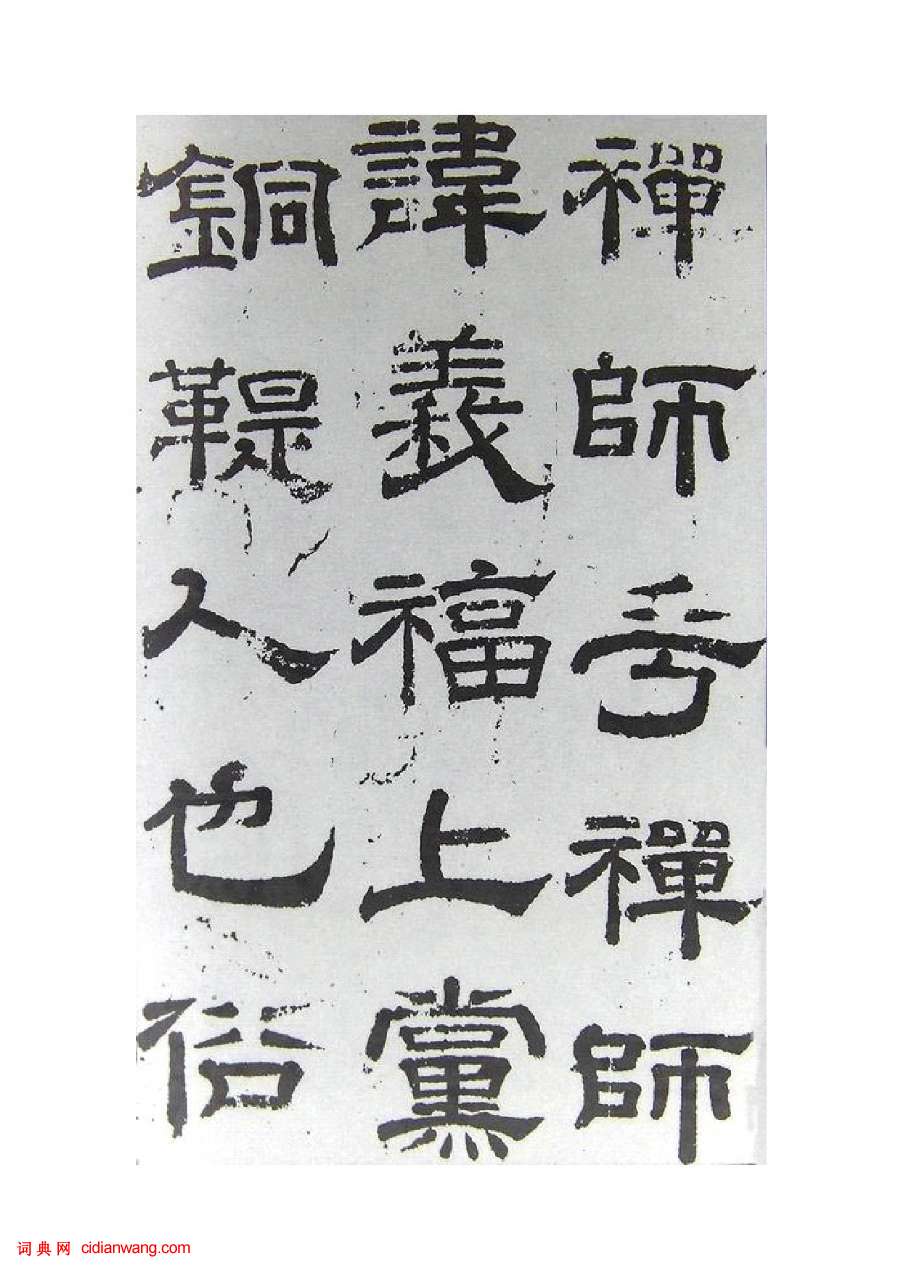 禪師乎禪師
諱義福上黨
銅鞮人也俗
词典网 cidianwang.com